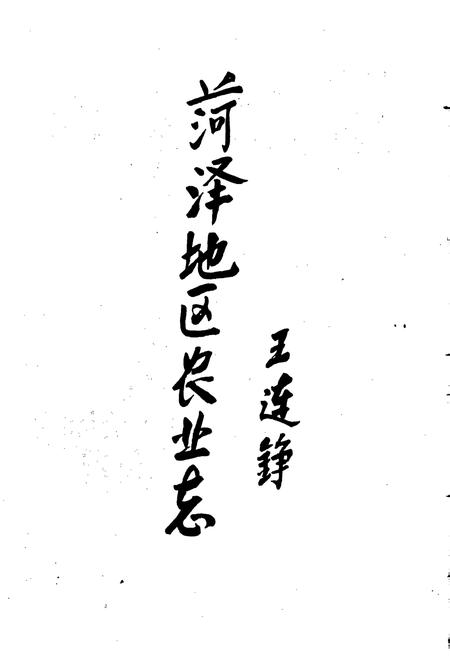 菏泽地区农业志
王连铮